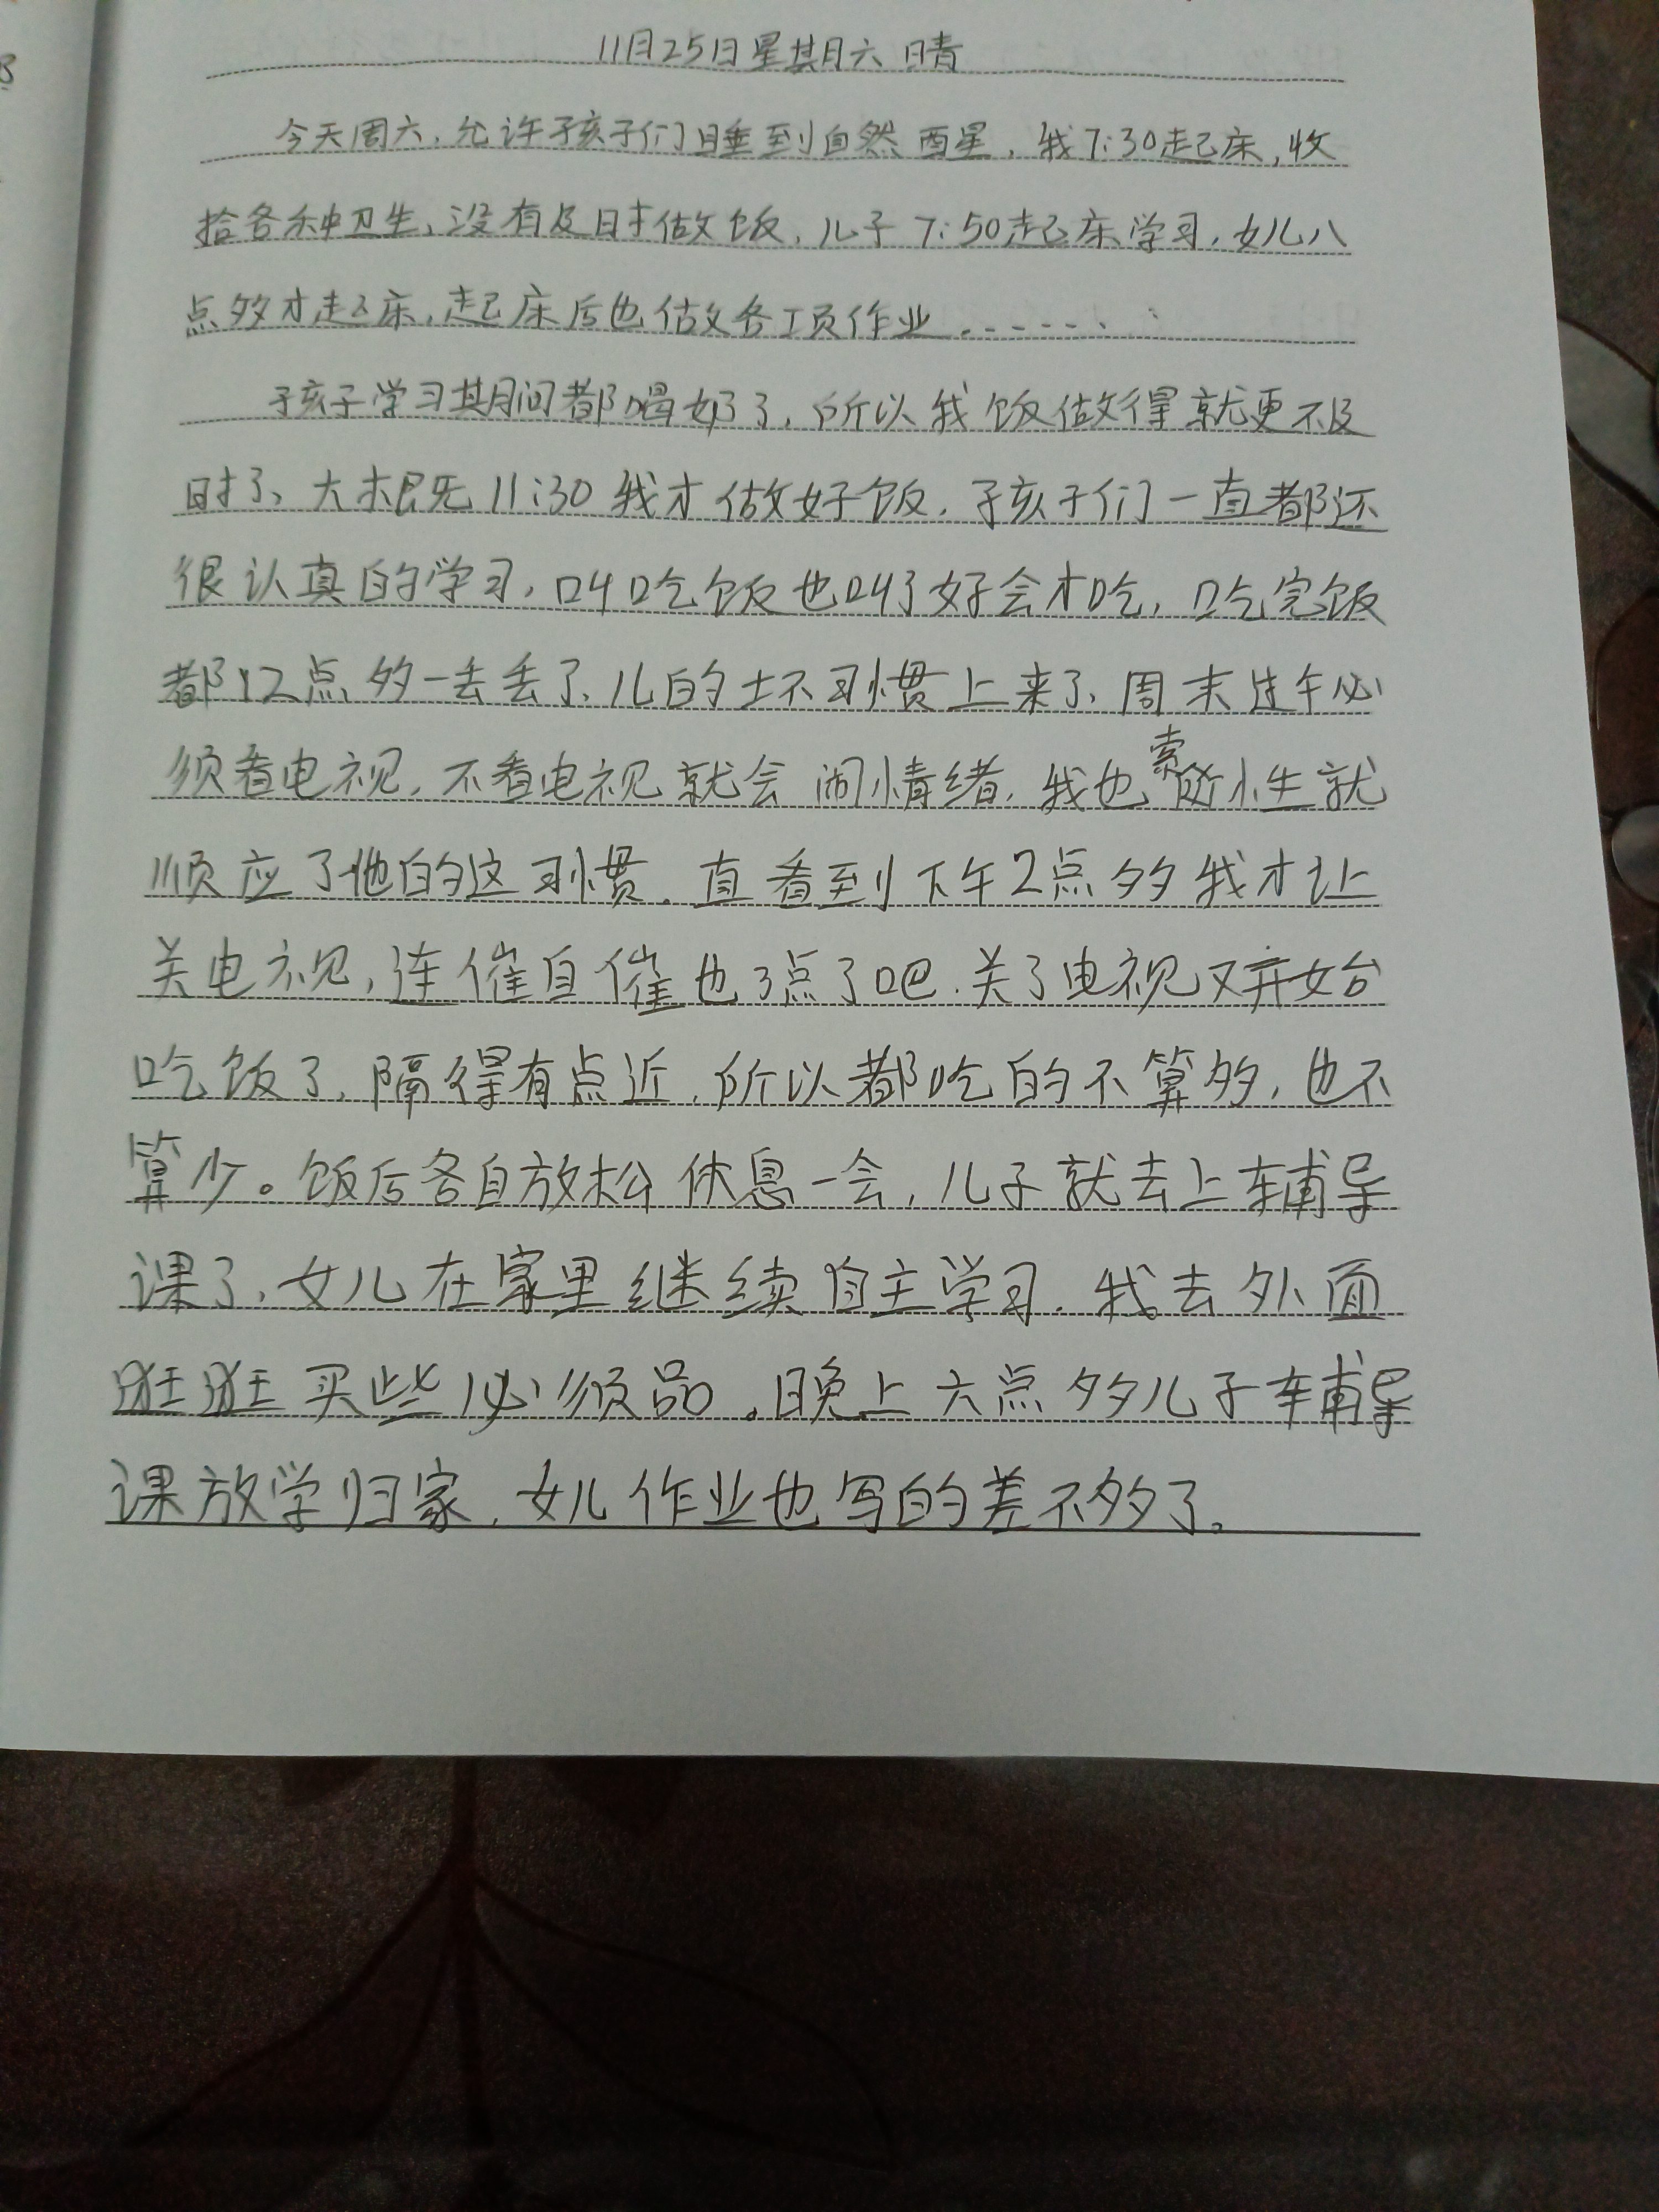 11月25日星期六 晴
今天周六，允许孩子们睡到自然醒，我7:30起床，收
拾各种卫生，没有及时做饭，儿子7:50起床学习，女儿八
点多才起床，起床后也做各项作业…….
孩子学习期间都喝奶了，所以我饭做得就更不及
时了，大概11:30我才做好饭，孩子们一直都还
很认真的学习，叫吃饭也叫了好会才吃，吃完饭
都12点多一丢丢了，儿的坏习惯上来了，周末过午必
须看电视，不看电视就会闹情绪，我也索性就
顺应了他的这习惯，直看到下午2点多我才让
关电视，连催自催也3点了吧，关了电视又开始
吃饭了，隔得有点近，所以都吃的不算多，也不
算少。饭后各自放松休息一会，儿子就去上辅导
课了，女儿在家里继续自主学习，我去外面
逛逛买些必须品。晚上六点多儿子辅导
课放学归家，女儿作业也写的差不多了。